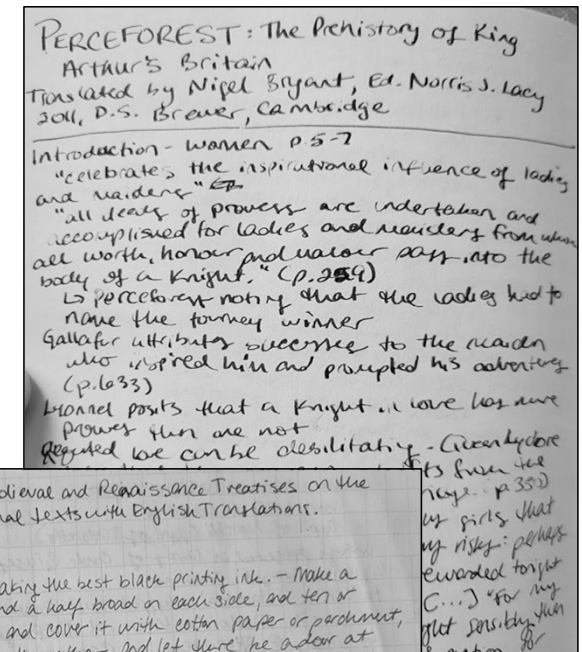 PERCEFOREST: The Prehistory of King
Arthur's Britain
Translated by Nigel Bryant, Ed. Norris J. Lacy
2011, D.S. Brewer, Cambridge
Introduction - women p.5-7
"celebrates the inspirational influence of ladies
and maidens"
"all deeds of prowess are undertaken and
accomplished for ladies and maidens from whom
all worth, honour and valour pass into the
body of a knight." (p.259)
↳ Perceforest noting that the ladies had to
name the tourney winner
Gallafur attributes successes to the maiden
who inspired him and prompted his adventures
(p.633)
Lyonnel posits that a knight in love has more
prowess than one not
love can be debilitating -
from the
p.35
girls that
risky: perhaps
rewarded tonight
(...) "For my
sensibly then
for
Medieval and Renaissance Treatises on the
texts with English Translations.
making the best black printing ink. - Make a
and a half broad on each side, and ten or
and cover it with cotton paper or parchment,
and let there be a door at